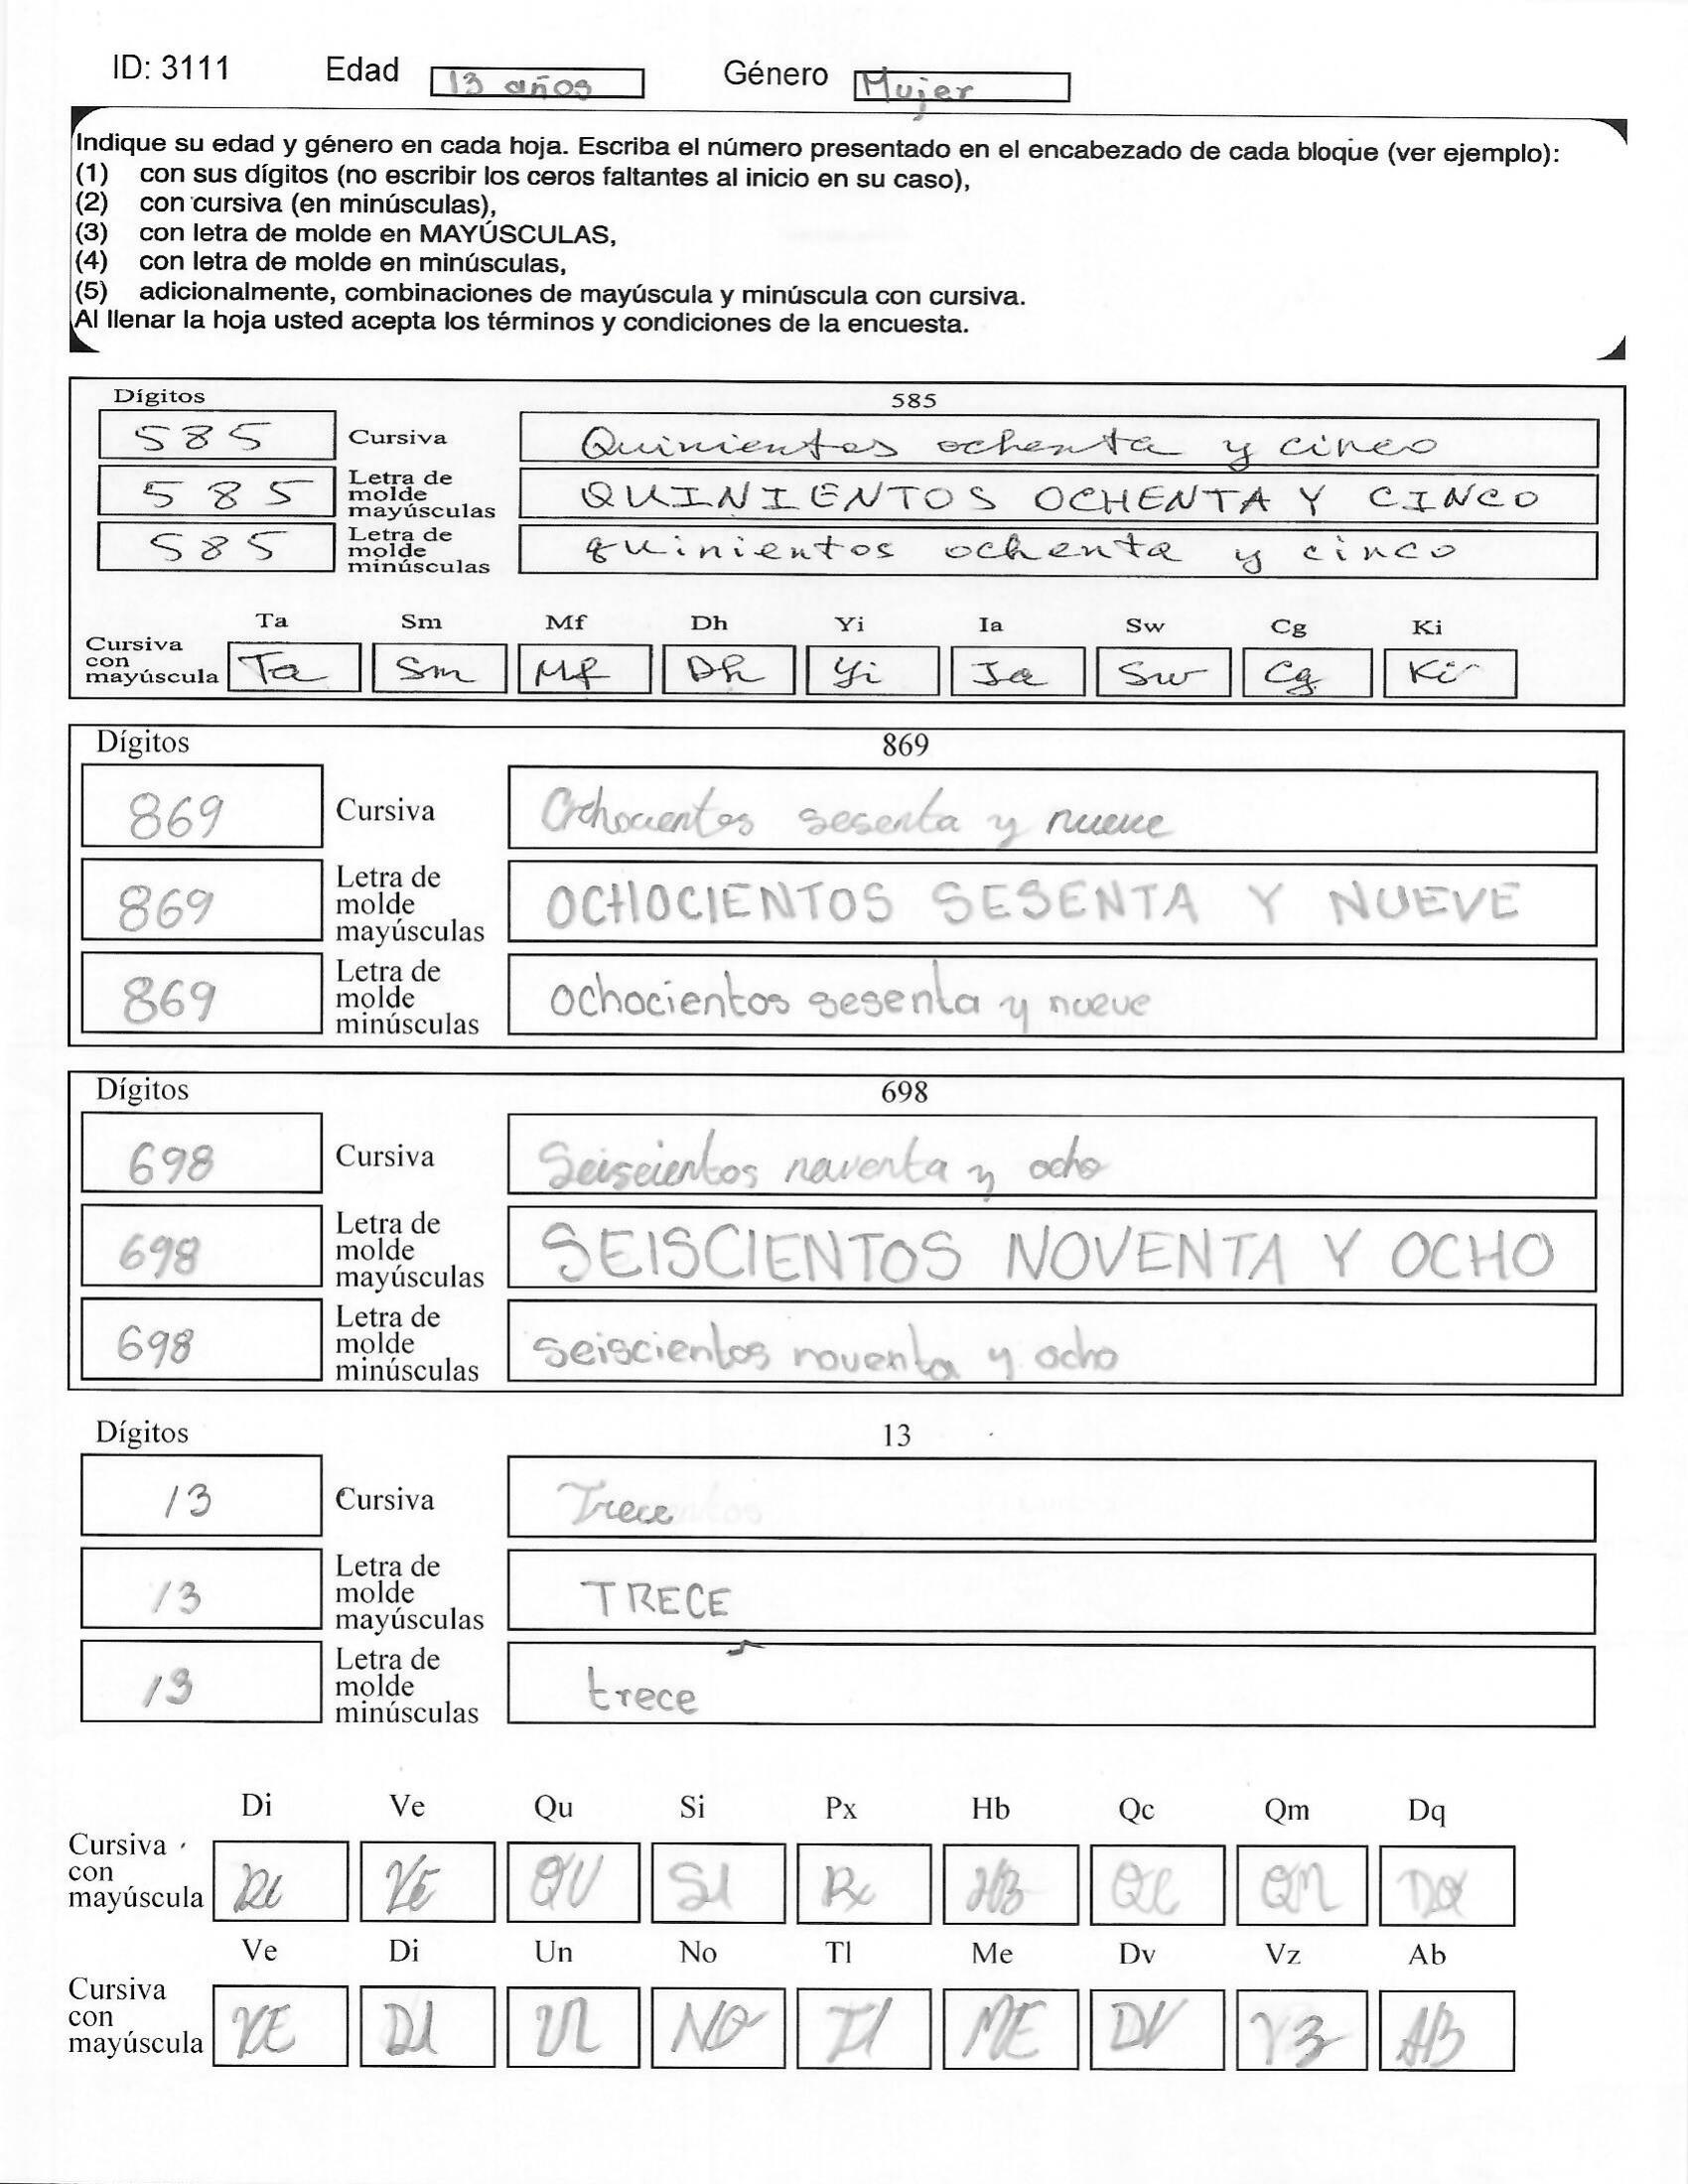 ID: 3111 Edad 13 años Género Mujer
Indique su edad y género en cada hoja. Escriba el número presentado en el encabezado de cada bloque (ver ejemplo):
(1) con sus dígitos (no escribir los ceros faltantes al inicio en su caso),
(2) con cursiva (en minúsculas),
(3) con letra de molde en MAYÚSCULAS,
(4) con letra de molde en minúsculas,
(5) adicionalmente, combinaciones de mayúscula y minúscula con cursiva.
Al llenar la hoja usted acepta los términos y condiciones de la encuesta.
Dígitos 585
585 Cursiva Quinientos ochenta y cinco
585 Letra de molde mayúsculas QUINIENTOS OCHENTA Y CINCO
585 Letra de molde minúsculas quinientos ochenta y cinco
Ta Sm Mf Dh Yi Ia Sw Cg Ki
Cursiva con mayúscula Ta Sm Mf Dh Yi Ia Sw Cg Ki
Dígitos 869
869 Cursiva Ochocientos sesenta y nueve
869 Letra de molde mayúsculas OCHOCIENTOS SESENTA Y NUEVE
869 Letra de molde minúsculas Ochocientos sesenta y nueve
Dígitos 698
698 Cursiva Seiscientos noventa y ocho
698 Letra de molde mayúsculas SEISCIENTOS NOVENTA Y OCHO
698 Letra de molde minúsculas seiscientos noventa y ocho
Dígitos 13
13 Cursiva Trece
13 Letra de molde mayúsculas TRECE
13 Letra de molde minúsculas trece
Di Ve Qu Si Px Hb Qc Qm Dq
Cursiva con mayúscula Di VE QU SI Px HB QC QM DQ
Ve Di Un No Tl Me Dv Vz Ab
Cursiva con mayúscula VE DI UN NO Tl ME DV VZ AB